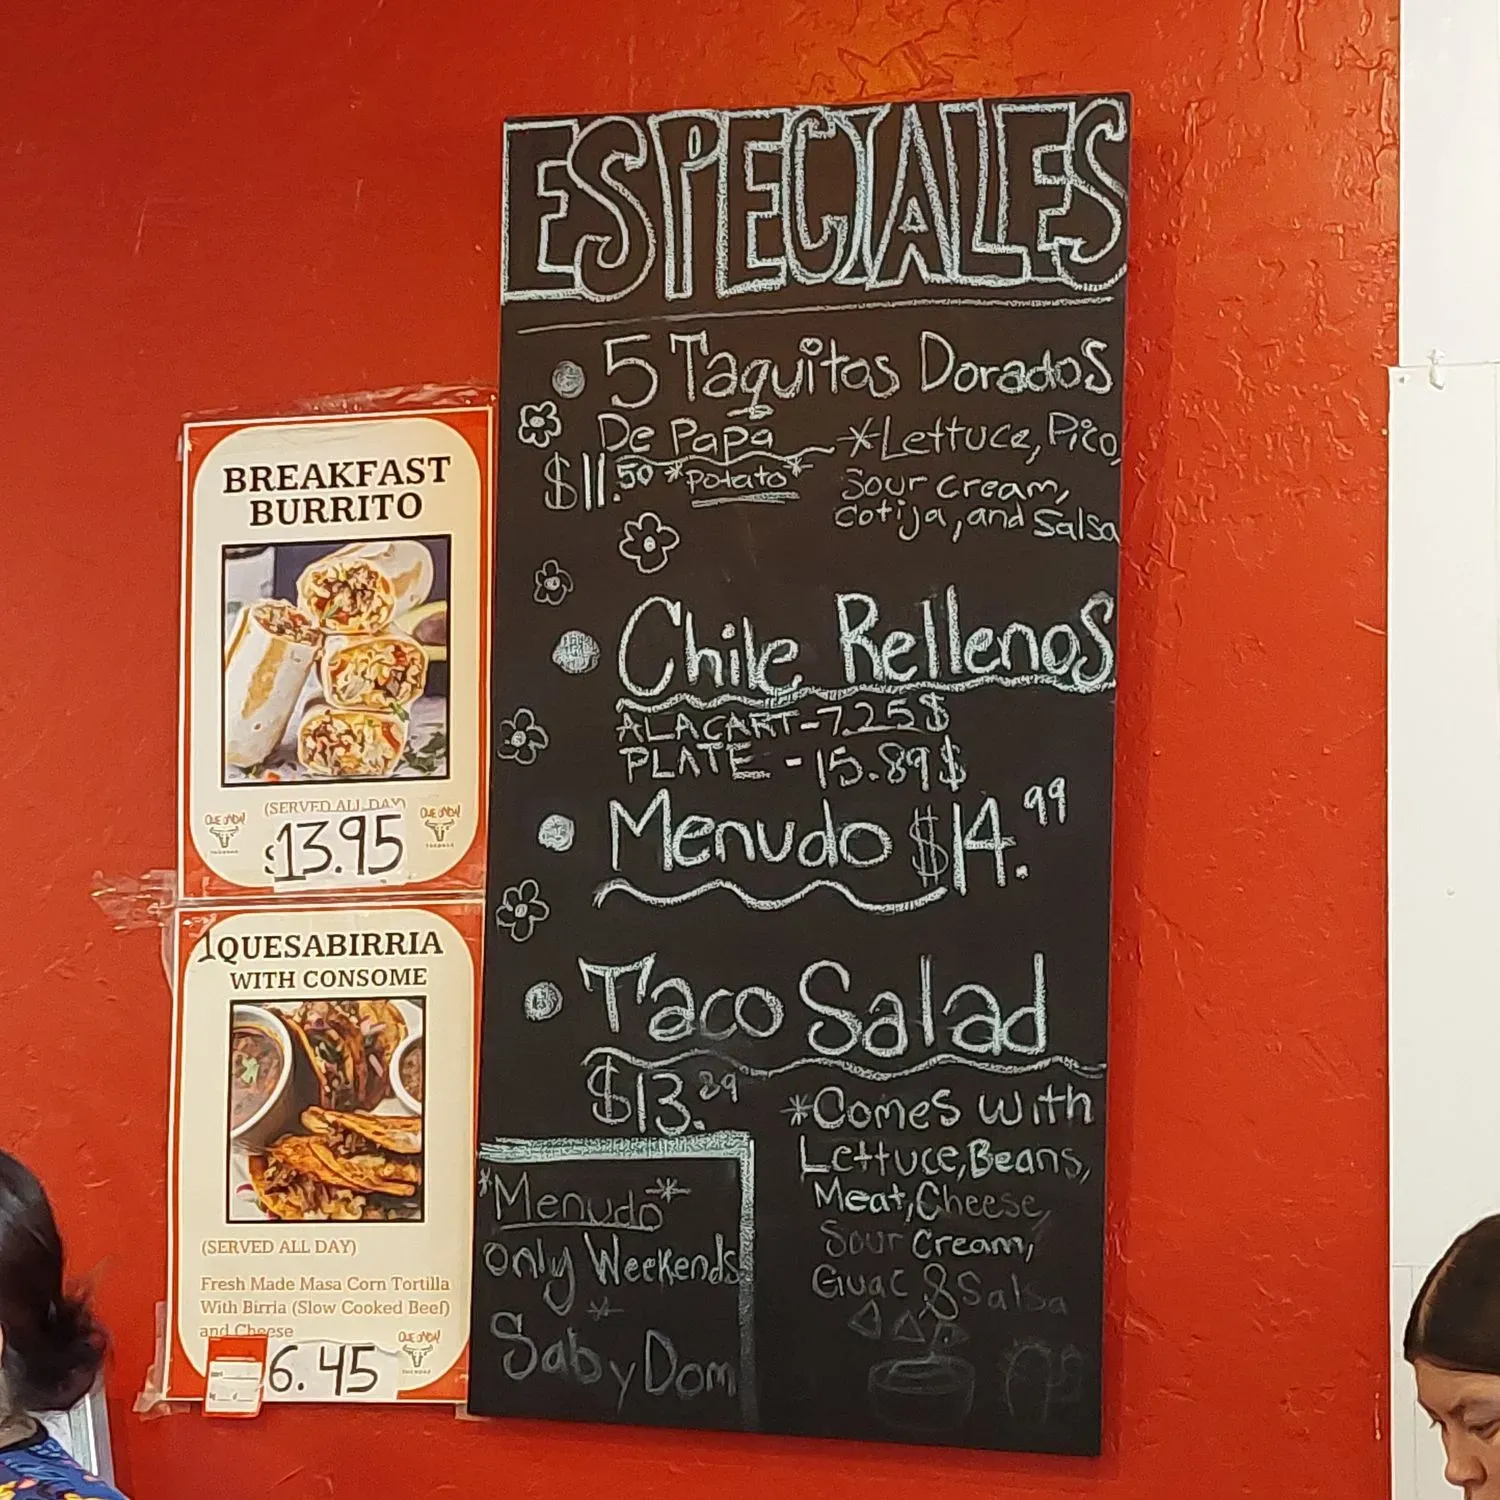 ESPECIALES
5 Taquitos Dorados
De Papa
$11.50 *Potato*
*Lettuce, Pico,
Sour cream,
Cotija, and Salsa
Chile Rellenos
ALACART-7.25$
PLATE - 15.89$
Menudo $14.99
Taco Salad
$13.29
*Comes with
Lettuce, Beans,
Meat, Cheese,
Sour Cream,
Guac & Salsa
*Menudo*
only Weekends
Sab y Dom
BREAKFAST
BURRITO
(SERVED ALL DAY)
$13.95
1QUESABIRRIA
WITH CONSOME
(SERVED ALL DAY)
Fresh Made Masa Corn Tortilla
With Birria (Slow Cooked Beef)
and Cheese
6.45